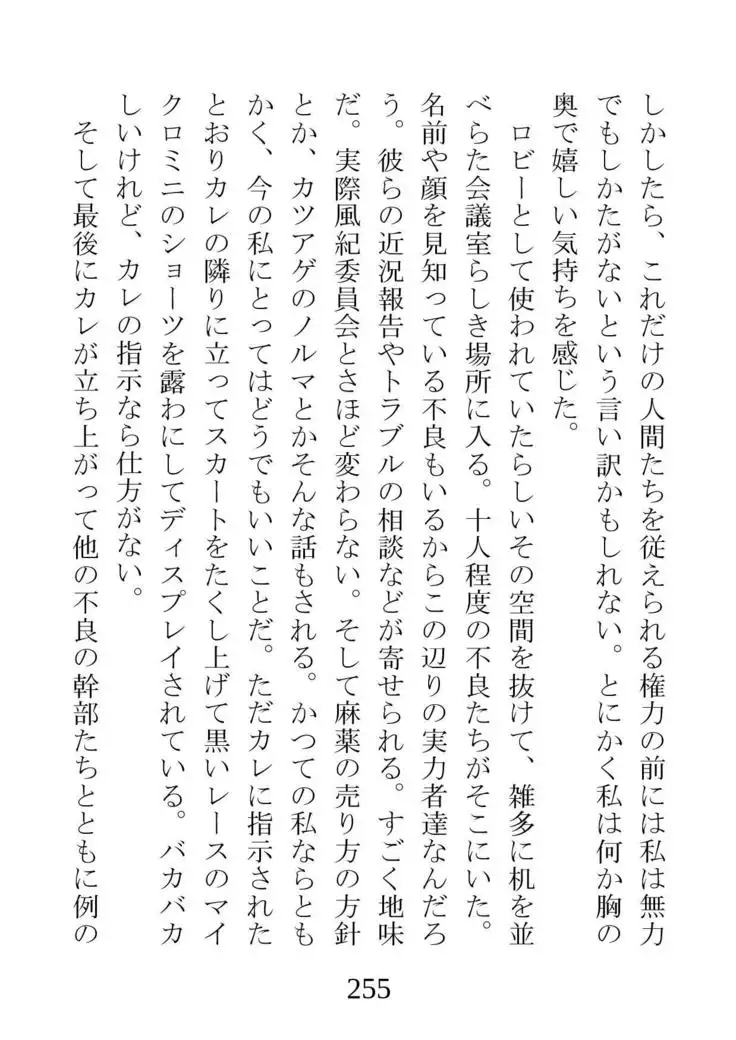 しかしたら、これだけの人間たちを従えられる権力の前には私は無力
でもしかたがないという言い訳かもしれない。とにかく私は何か胸の
奥で嬉しい気持ちを感じた。
ロビーとして使われていたらしいその空間を抜けて、雑多に机を並
べらた会議室らしき場所に入る。十人程度の不良たちがそこにいた。
名前や顔を見知っている不良もいるからこの辺りの実力者達なんだろ
う。彼らの近況報告やトラブルの相談などが寄せられる。すごく地味
だ。実際風紀委員会とさほど変わらない。そして麻薬の売り方の方針
とか、カツアゲのノルマとかそんな話もされる。かつての私ならとも
かく、今の私にとってはどうでもいいことだ。ただカレに指示された
とおりカレの隣りに立ってスカートをたくし上げて黒いレースのマイ
クロミニのショーツを露わにしてディスプレイされている。バカバカ
しいけれど、カレの指示なら仕方がない。
そして最後にカレが立ち上がって他の不良の幹部たちとともに例の
255